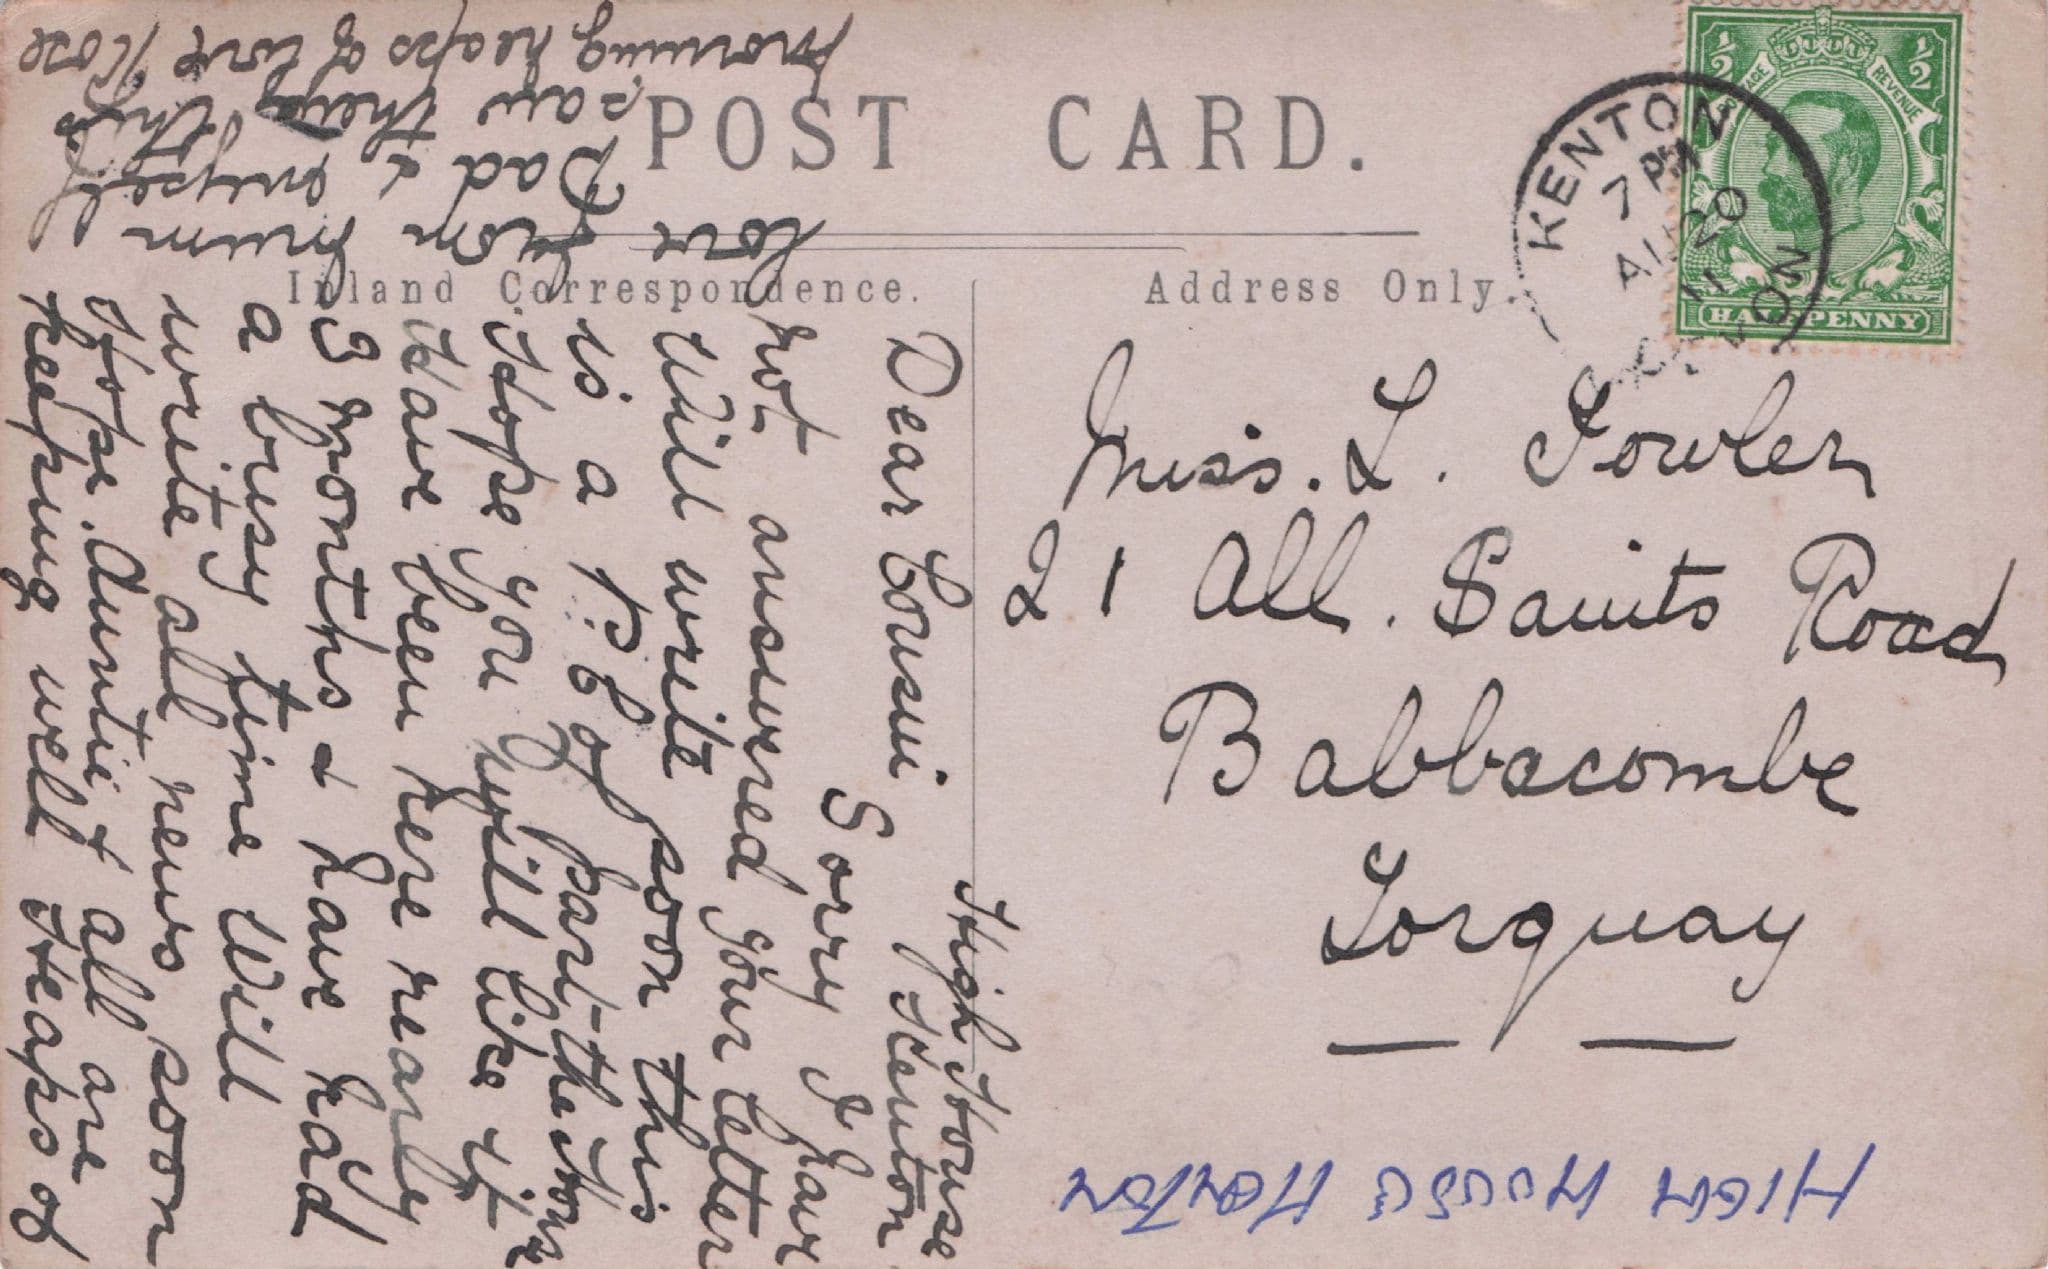 POST CARD.
Inland Correspondence.
Address Only.
KENTON
7 PM
AU 20
11
DEVON
POSTAGE
REVENUE
½
½
HALFPENNY
Miss. L. Fowler
21 All. Saints Road
Babbacombe
Torquay
High House
Kenton
Dear Cousin
Sorry I have
not answered your letter
Will write soon this
is a P.C of part the House
Hope you will like it
Have been here nearly
3 months & have had
a busy time Will
write all news soon
Hope. Auntie & all are
keeping well Heaps of
love from mum
Dad & myself
saw they this
morning heaps of love Rose
HIGH HOUSE KENTON